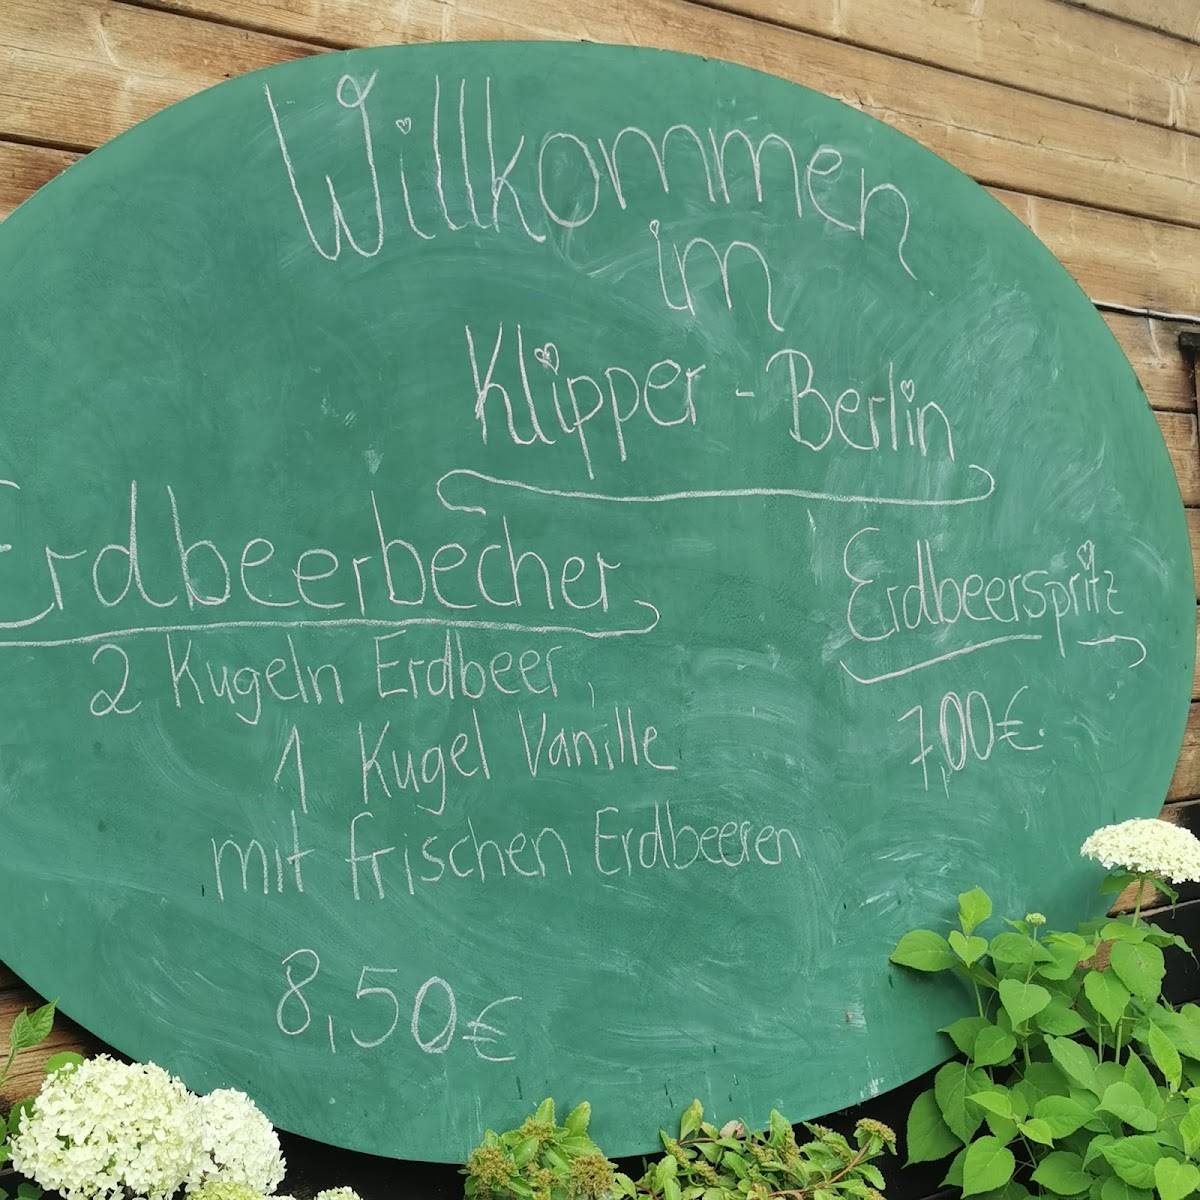 Willkommen
im
Klipper - Berlin
Erdbeerbecher
2 Kugeln Erdbeer,
1 Kugel Vanille
mit frischen Erdbeeren
8,50€
Erdbeerspritz
7,00€.